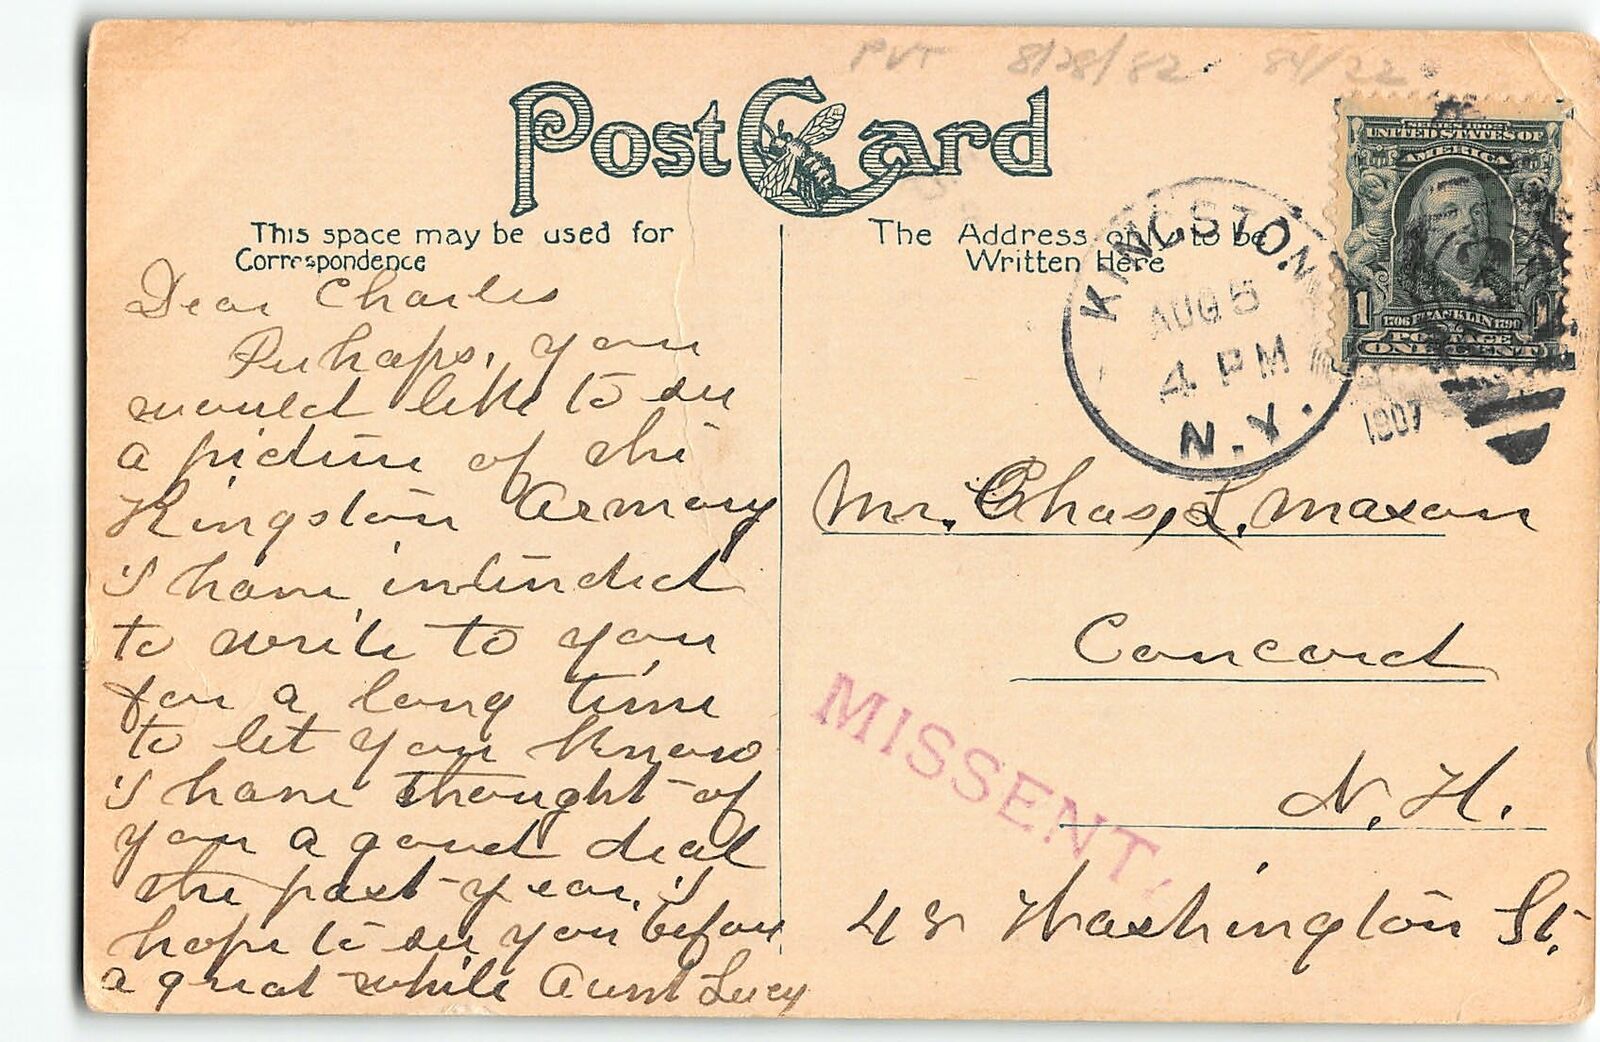 PVT 8/28/82 84/22
Post Card
This space may be used for
Correspondence
The Address only to be
Written Here
KINGSTON
AUG 5
4 PM
N.Y.
1907
SERIES 1902
UNITED STATES OF
AMERICA
1706 FRANKLIN 1790
POSTAGE
1 ONE CENT 1
Dear Charles
Perhaps, you
would like to see
a picture of the
Kingston Armory
I have intended
to write to you
for a long time
to let you know
I have thought of
you a good deal
the past year. I
hope to see you before
a great while Aunt Lucy
Mr. Chas. L. Maxon
Concord
N.H.
48 Washington St.
MISSENT